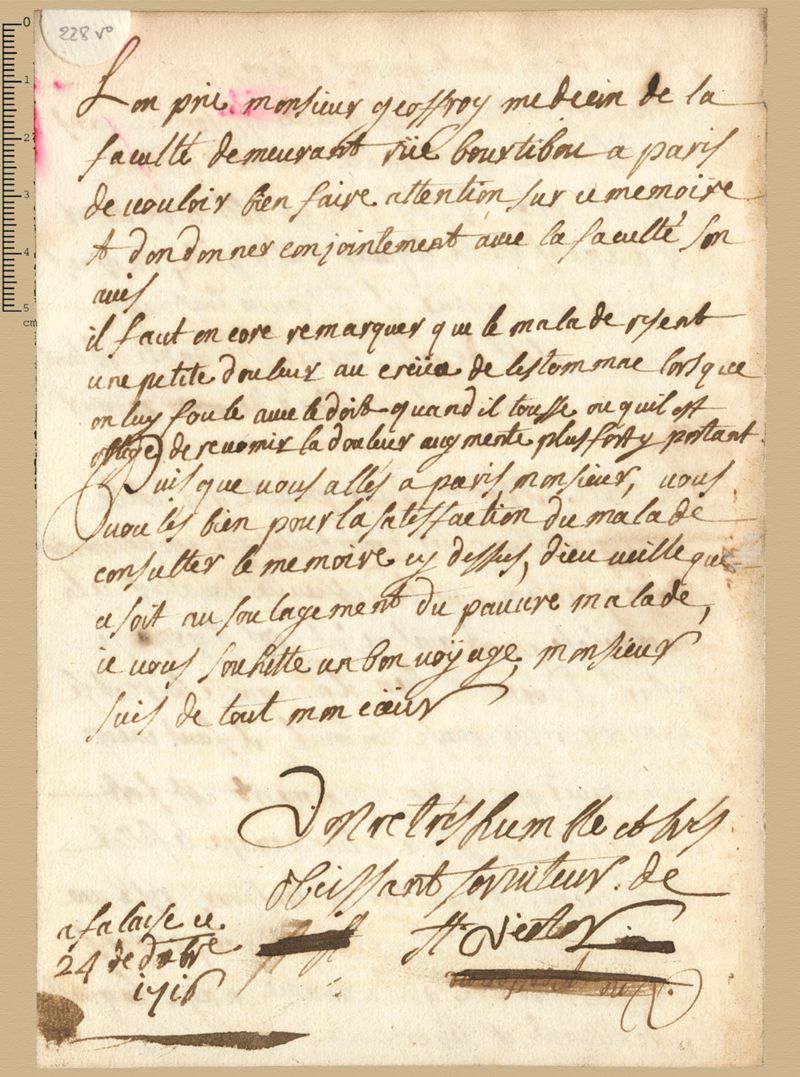 228 v°
0
1
2
3
4
5
cm
Lon prie monsieur geoffroy medecin de la
faculté demeurant rüe bourtibou a paris
de vouloir bien faire attention sur ce memoire
et don donner conjointement avec la faculté son
avis
il faut encore remarquer que le malade resent
une petite douleur au creüx de lestommac lorsque
on luy foule avec le doit quand il tousse ou quil est
obligé de revomir la douleur augmente plus fort y portant
Puis que vous allés a paris monsieur, vous
voulés bien pour la satisfaction du malade
consulter le memoire cy dessus, dieu veille que
ce soit au soulagement du pauvre malade,
ie vous souhette un bon voÿage, monsieur
suis de tout mon cœur
Vostre très humble et très
obeissant serviteur. de
St Victor
a falaise ce
24 de
1716